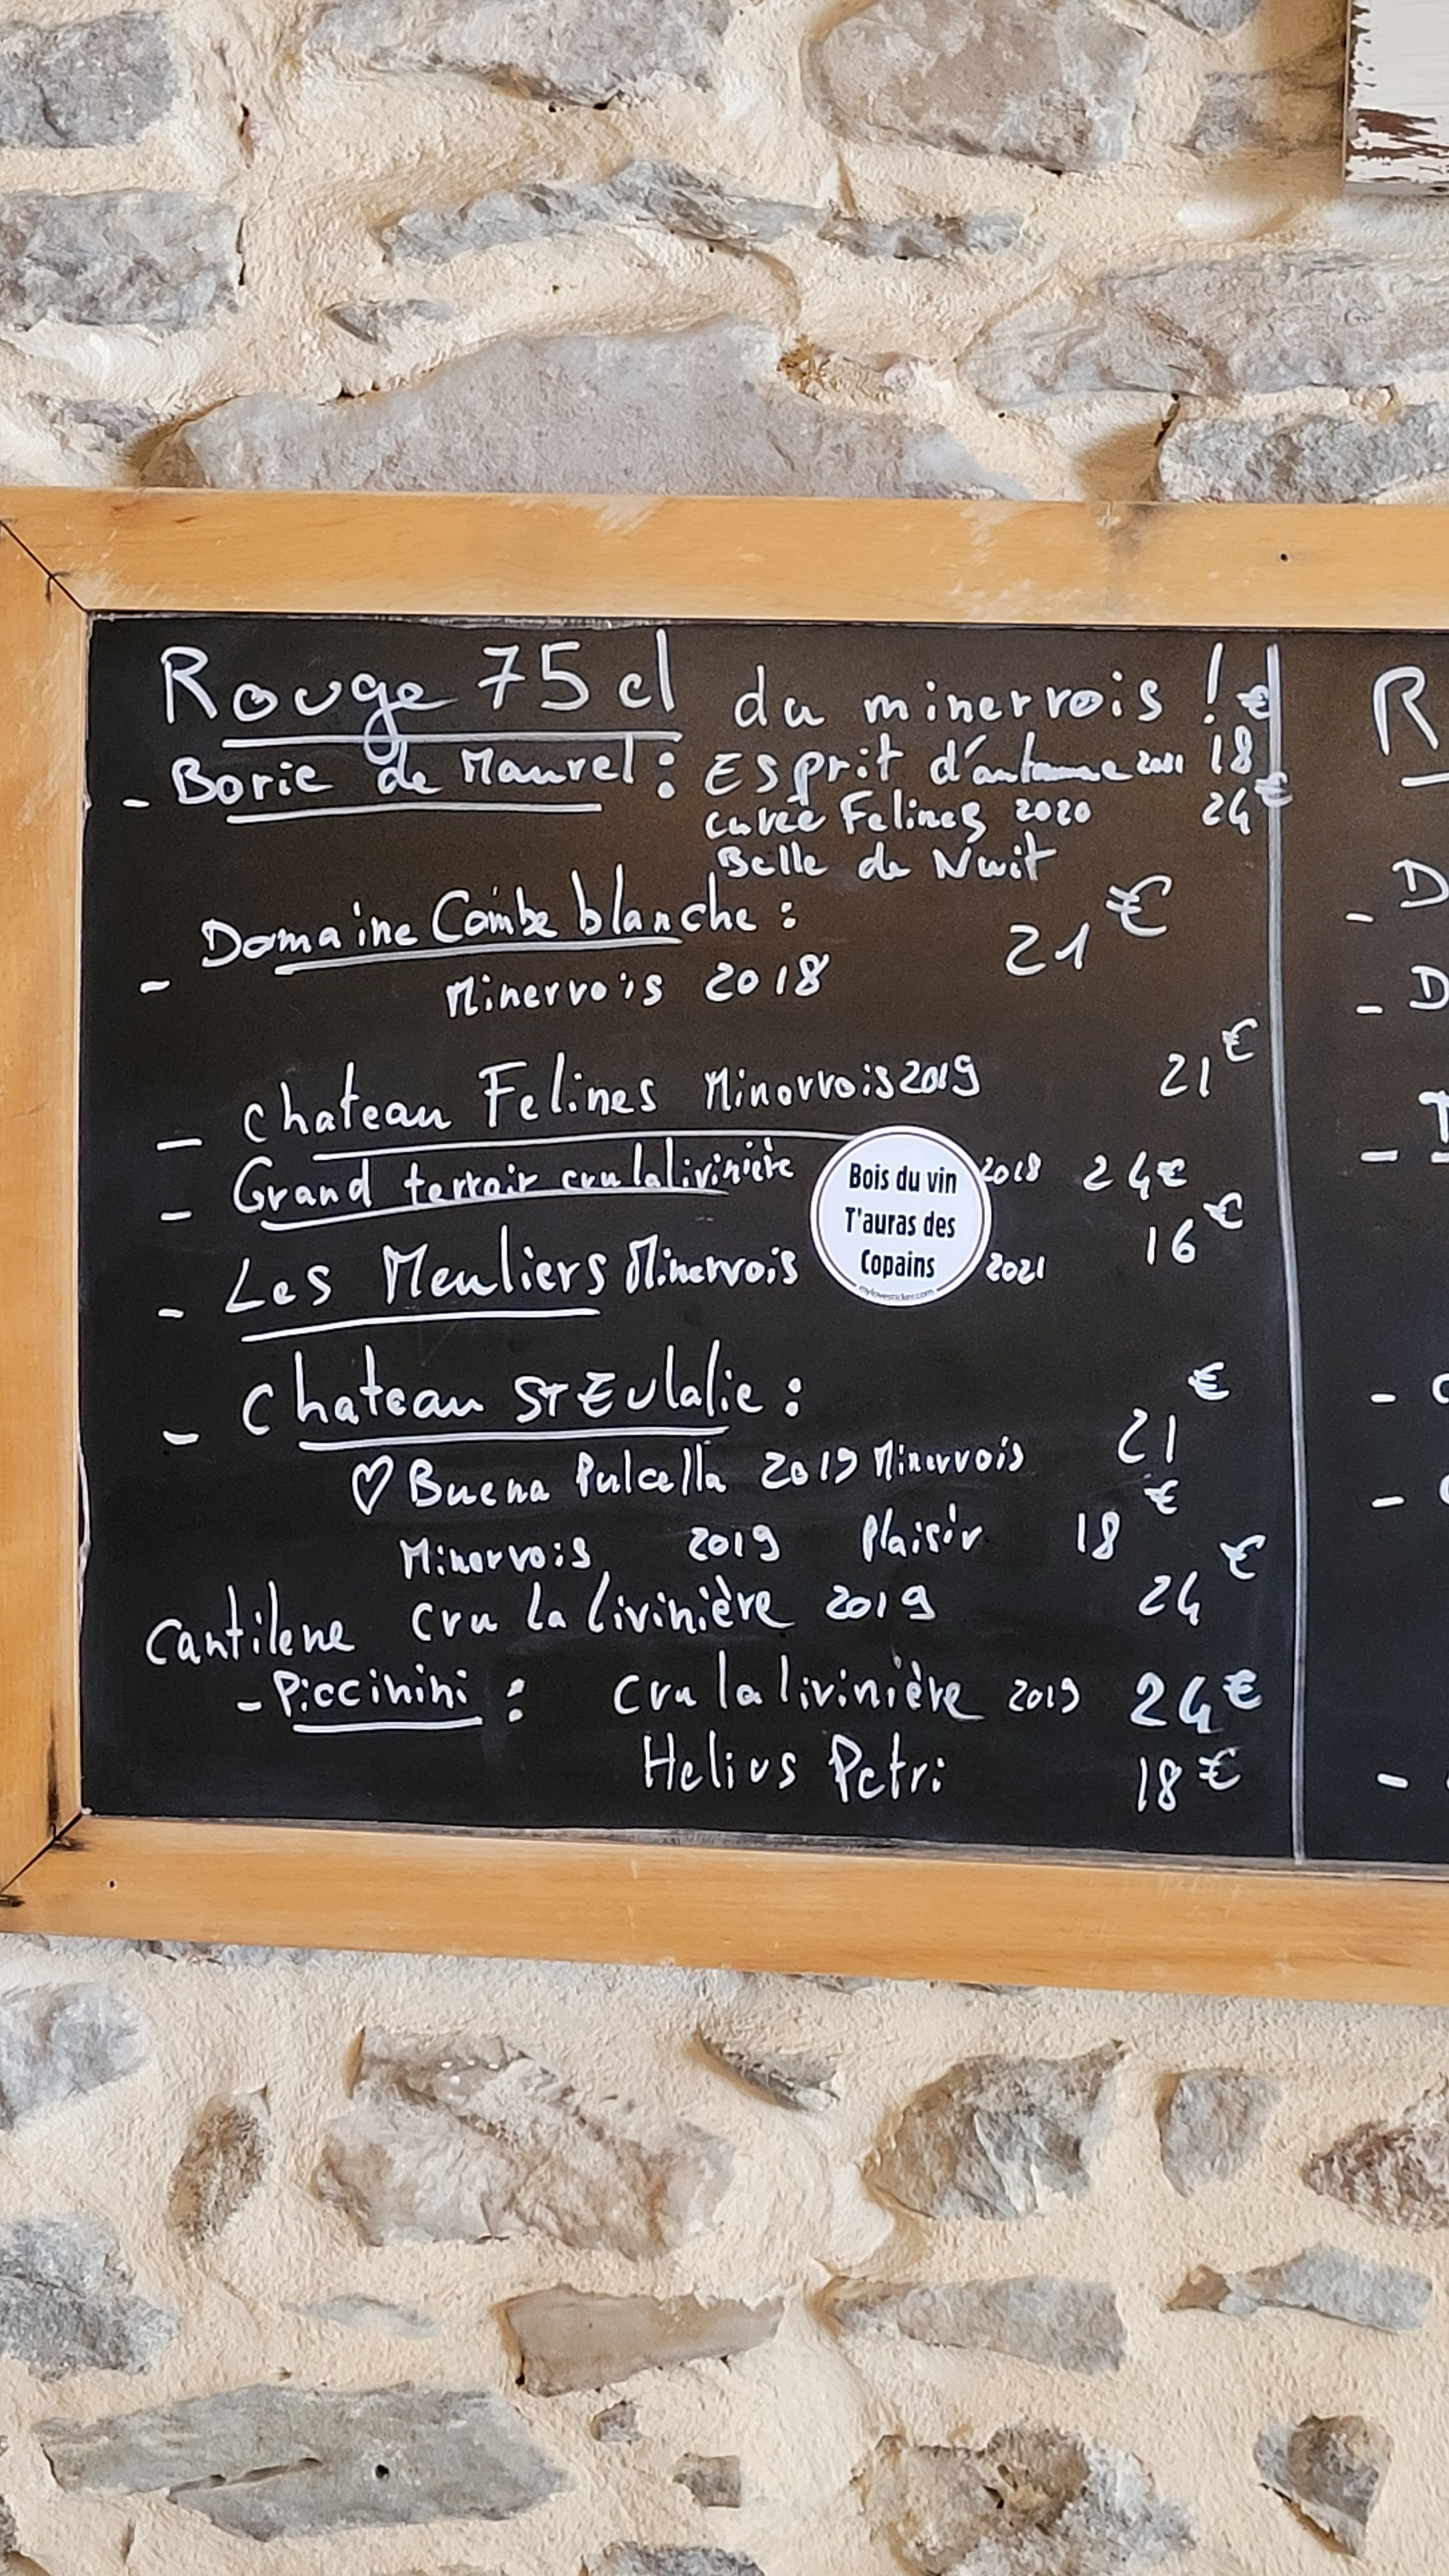 Rouge 75 cl du minervois ! €
- Borie de Maurel : Esprit d'automne 2021 18
cuvée Felines 2020 24 €
Belle de Nuit
- Domaine Combe blanche : 21 €
Minervois 2018
- Chateau Felines Minervois 2019 21 €
- Grand terroir cru la livinière 2018 24 €
- Les Meuliers Minervois 2021 16 €
Bois du vin
T'auras des
Copains
mylovesticker.com
- Chateau St Eulalie :
♡ Buena Pulcella 2019 Minervois 21 €
Minervois 2019 Plaisir 18 €
Cantilene cru la livinière 2019 24 €
- Piccinini : cru la livinière 2019 24 €
Helios Petri 18 €
R
- D
- D